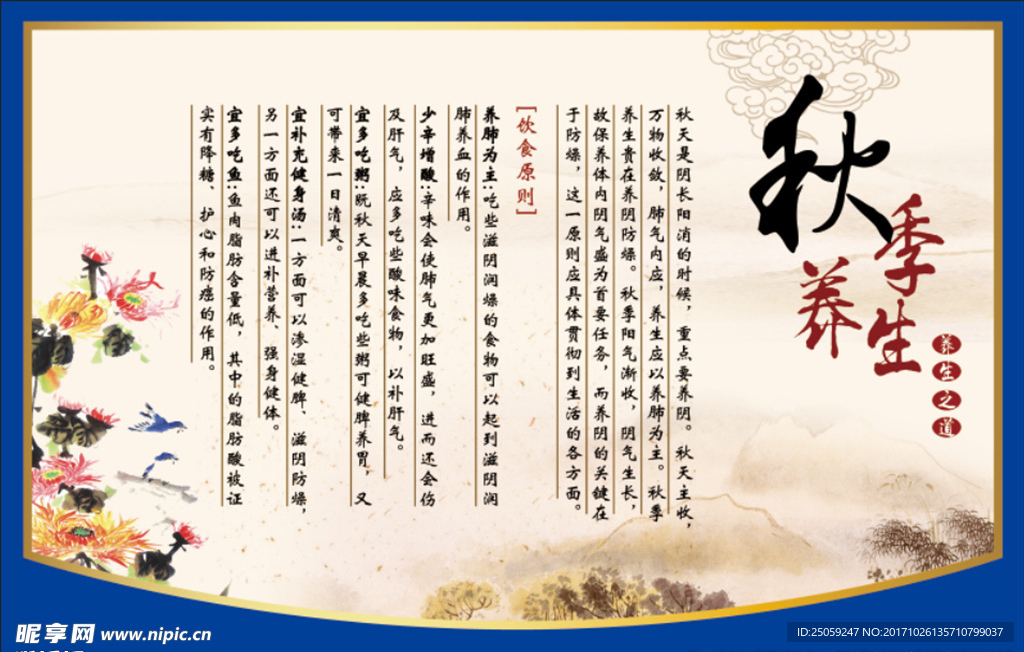 秋季养生
养生之道
秋天是阴长阳消的时候，重点要养阴。秋天主收，
万物收敛，肺气内应，养生应以养肺为主。秋季
养生贵在养阴防燥。秋季阳气渐收，阴气生长，
故保养体内阴气盛为首要任务，而养阴的关键在
于防燥，这一原则应具体贯彻到生活的各方面。
[饮食原则]
养肺为主:吃些滋阴润燥的食物可以起到滋阴润
肺养血的作用。
少辛增酸:辛味会使肺气更加旺盛，进而还会伤
及肝气，应多吃些酸味食物，以补肝气。
宜多吃粥:既秋天早晨多吃些粥可健脾养胃，又
可带来一日清爽。
宜补充健身汤:一方面可以渗湿健脾、滋阴防燥，
另一方面还可以进补营养、强身健体。
宜多吃鱼:鱼肉脂肪含量低，其中的脂肪酸被证
实有降糖、护心和防癌的作用。
昵享网 www.nipic.cn
ID:25059247 NO:20171026135710799037